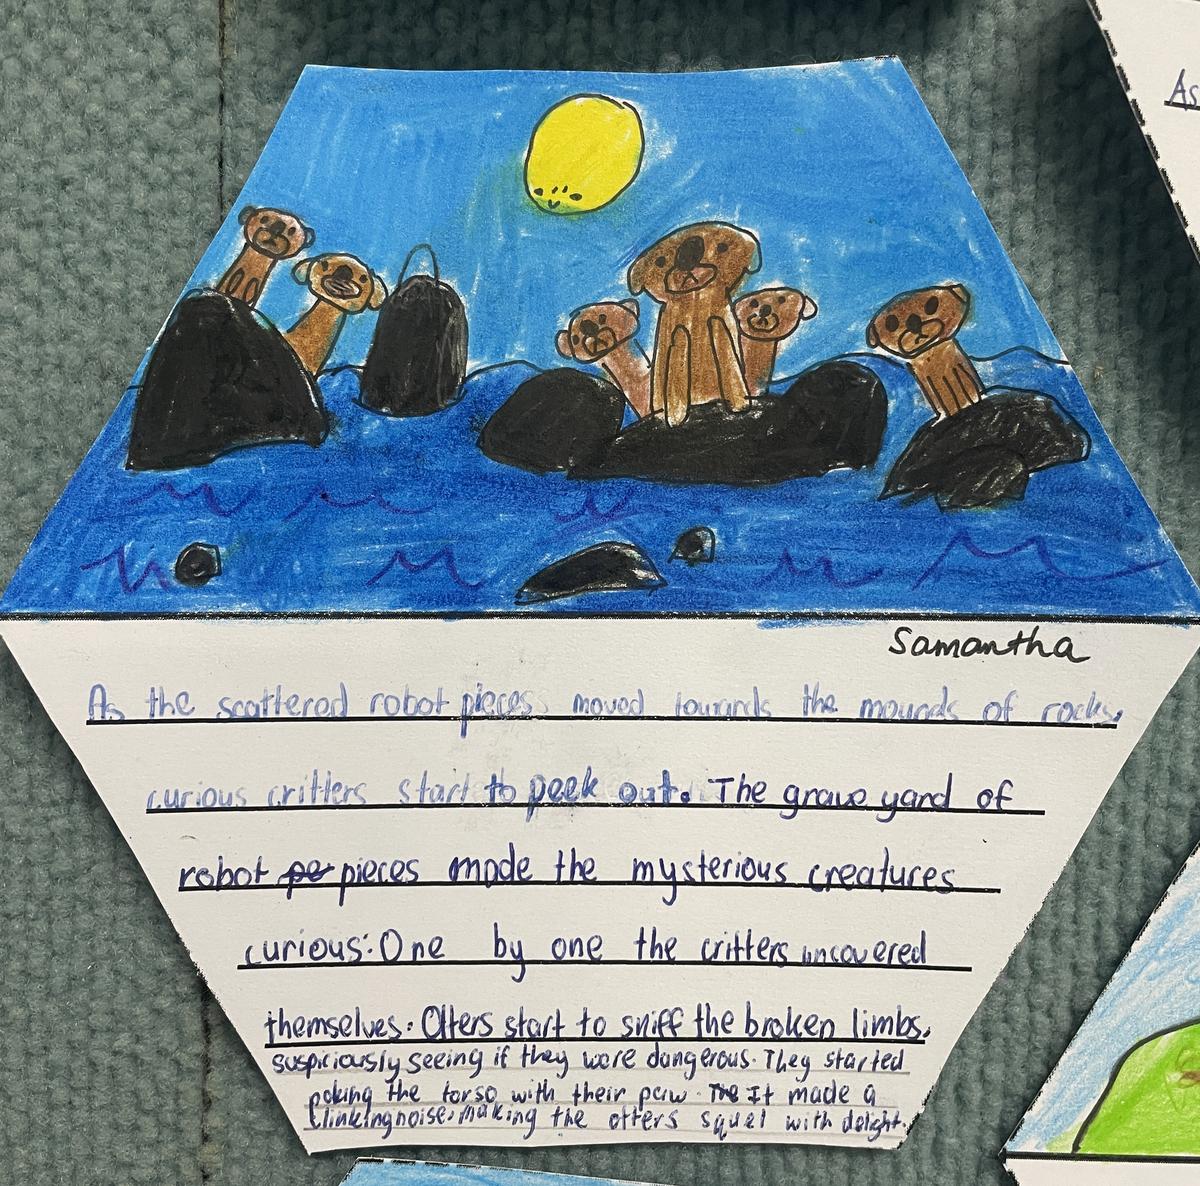 As
Samantha
As the scattered robot pieces moved towards the mounds of rocks,
curious critters start to peek out. The grave yard of
robot pe pieces made the mysterious creatures
curious. One by one the critters uncovered
themselves. Otters start to sniff the broken limbs,
suspiciously seeing if they were dangerous. They started
poking the torso with their paw. The It made a
clinking noise, making the otters squel with delight.